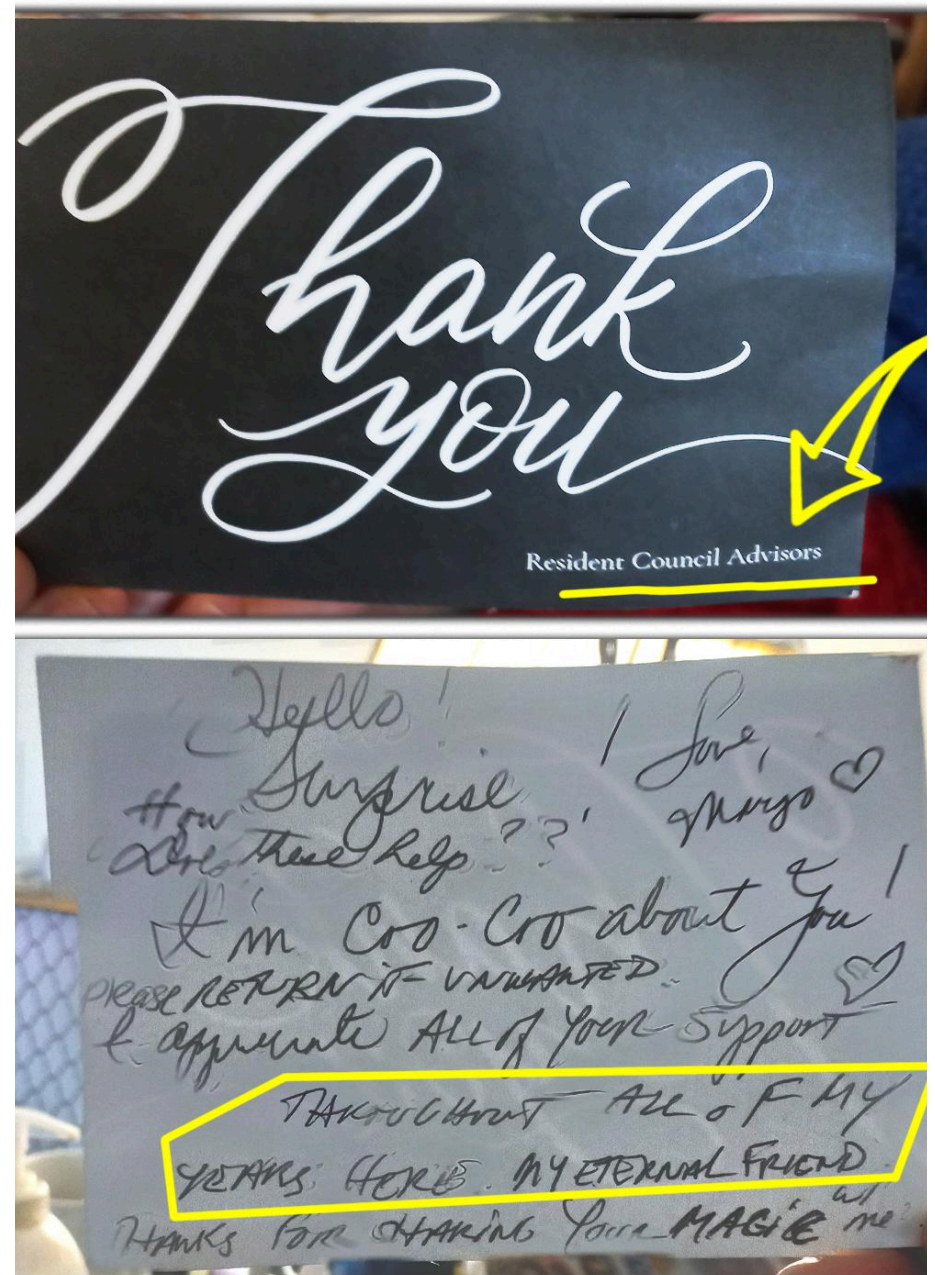 Thank
you
Resident Council Advisors
Hello!
Surprise! Love,
How Margo
Does these help???
I'm Coo-Coo about You!
please RETURN IF UNWANTED.
I appreciate ALL of Your Support
THROUGHOUT ALL OF MY
YEARS HERE. MY ETERNAL FRIEND.
THANKS FOR SHARING Your MAGIC w/ me